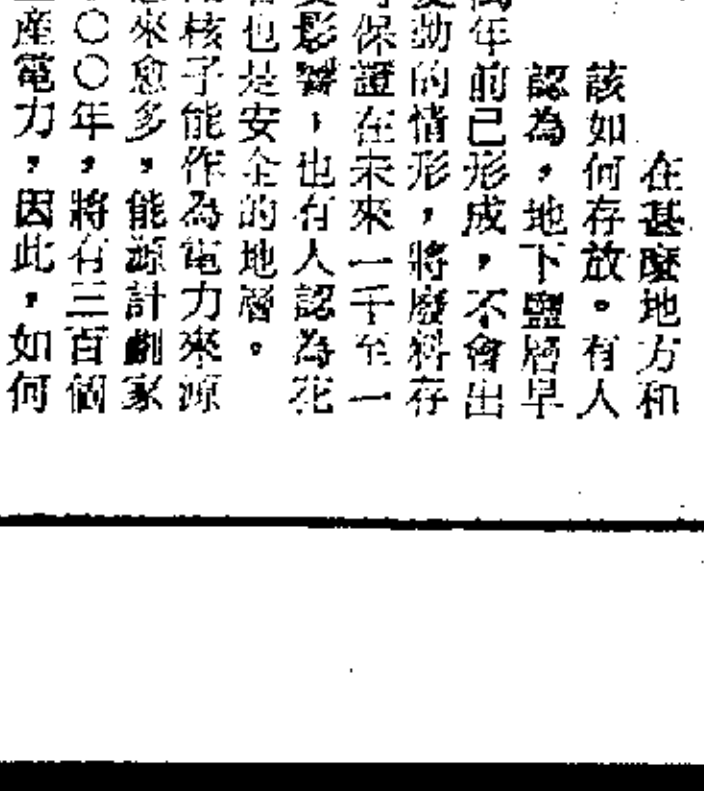 在甚麼地方和
該如何存放。有人
認為，地下鹽層早
萬年前已形成，不會出
變動的情形，將廢料存
保證在未來一千至一
影響，也有人認為花
也是安全的地層。
核子能作為電力來源
來愈多，能源計劃家
〇〇年，將有三百個
產電力，因此，如何